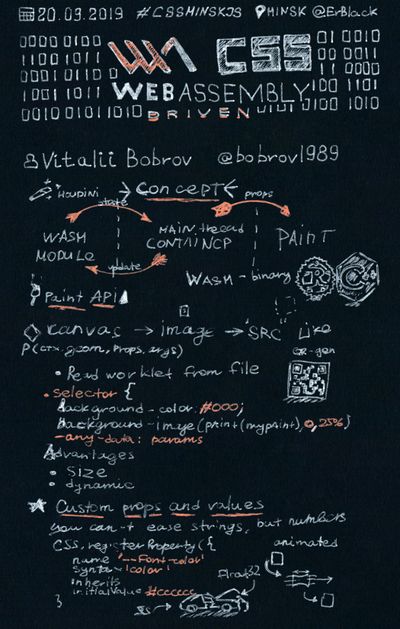 20.09.2019 #CSSMINSKJS MINSK @ErBlack
WA CSS
WEBASSEMBLY
DRIVEN
Vitalii Bobrov @bobrov1989
HOUDINI → CONCEPT ← props
state
WASM MODULE
MAIN thread CONTAINCP
PAINT
update
WASM - binary
R C
Paint API
Kanvas → image → "SRC" Like
P(ctx, geom, props, args)
QR-gen
• Read worklet from file
• selector {
Background-color: #000;
Background-image(print(mypaint), 0, 25%)
-any-data: params
Advantages
• Size
• dynamic
Custom props and values
you can-t ease strings, but numbers
CSS.registerProperty({ animates
name '--Font-color'
syntax 'color'
inherits
initialValue #cccccc
}
Float32